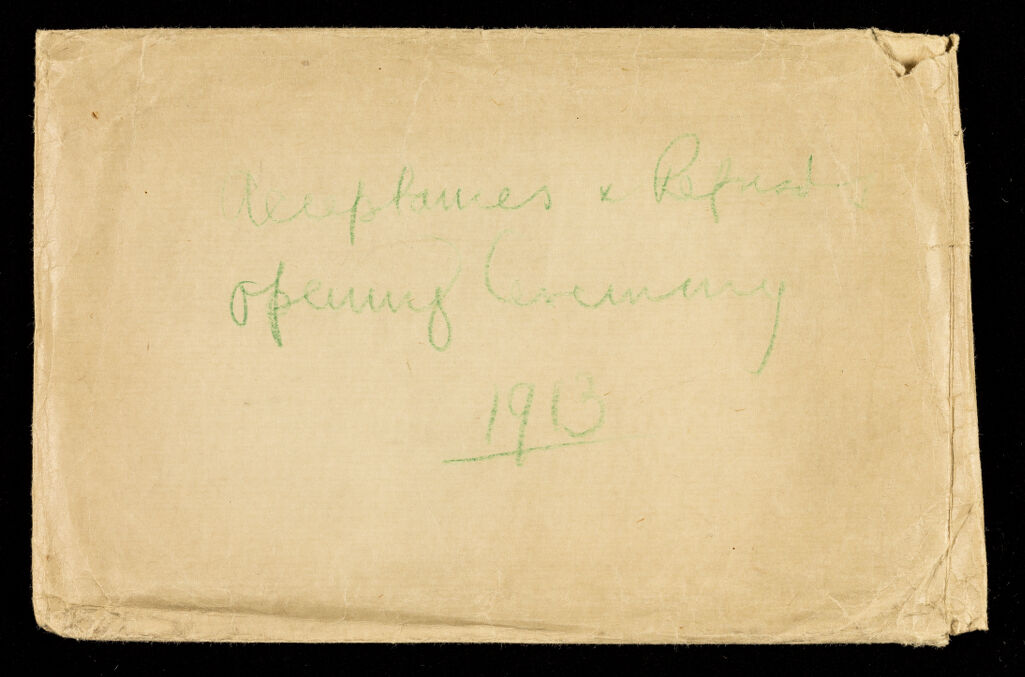 Acceptances & Refusals
opening Ceremony
1913